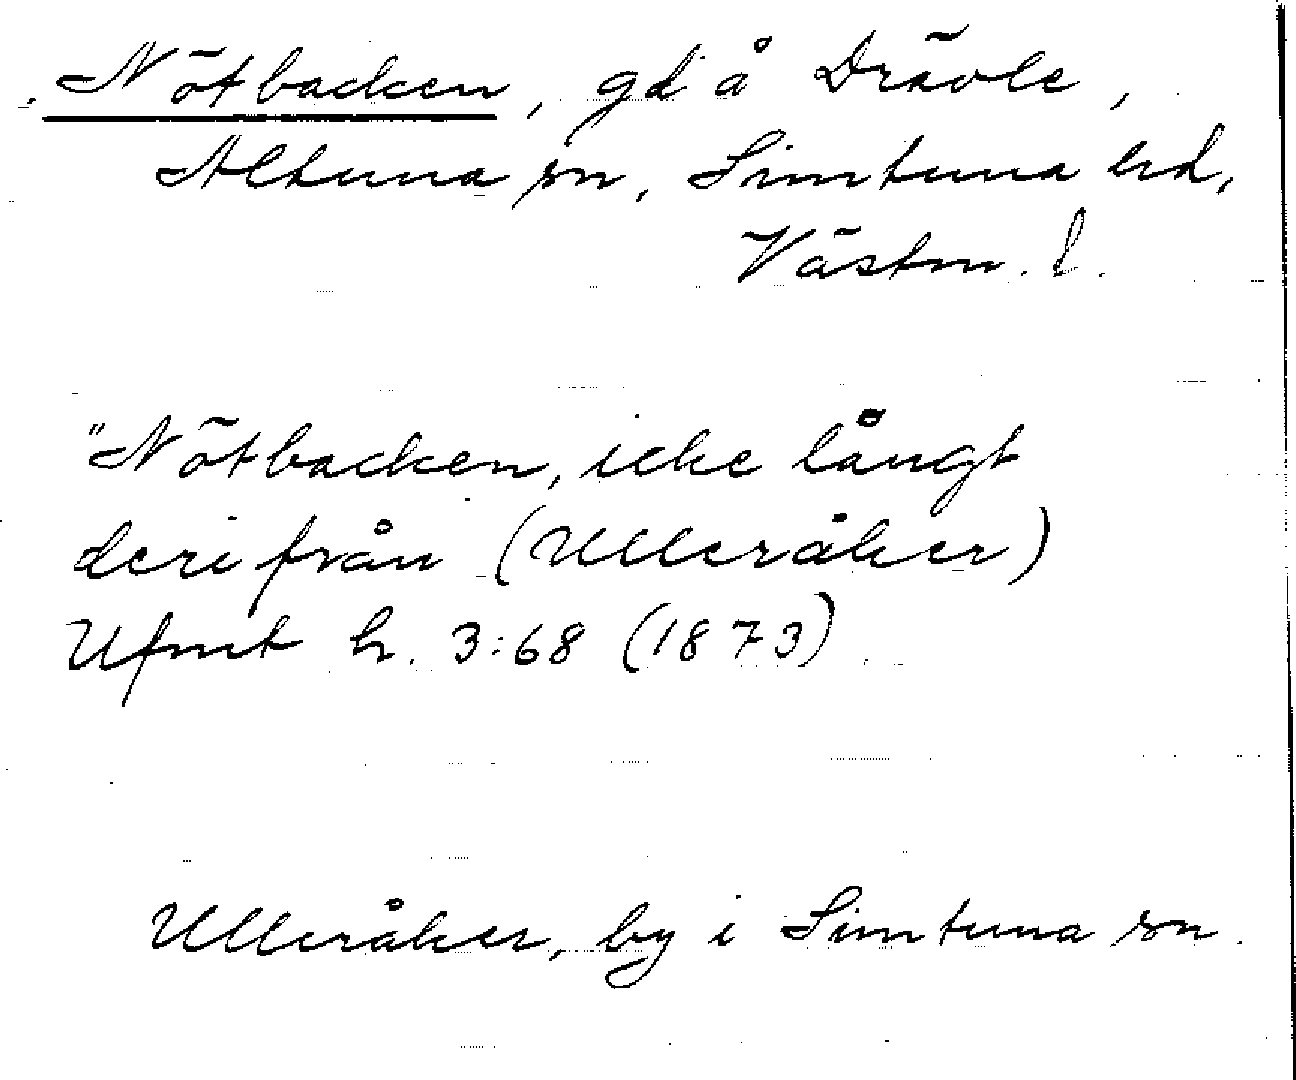 Nötbacken, gd å Drävle,
Altuna sn, Simtuna hd,
Västm. l.
"Nötbacken, icke långt
derifrån (Ulleråker)
Ufmt h. 3:68 (1873)
Ulleråker, by i Simtuna sn.